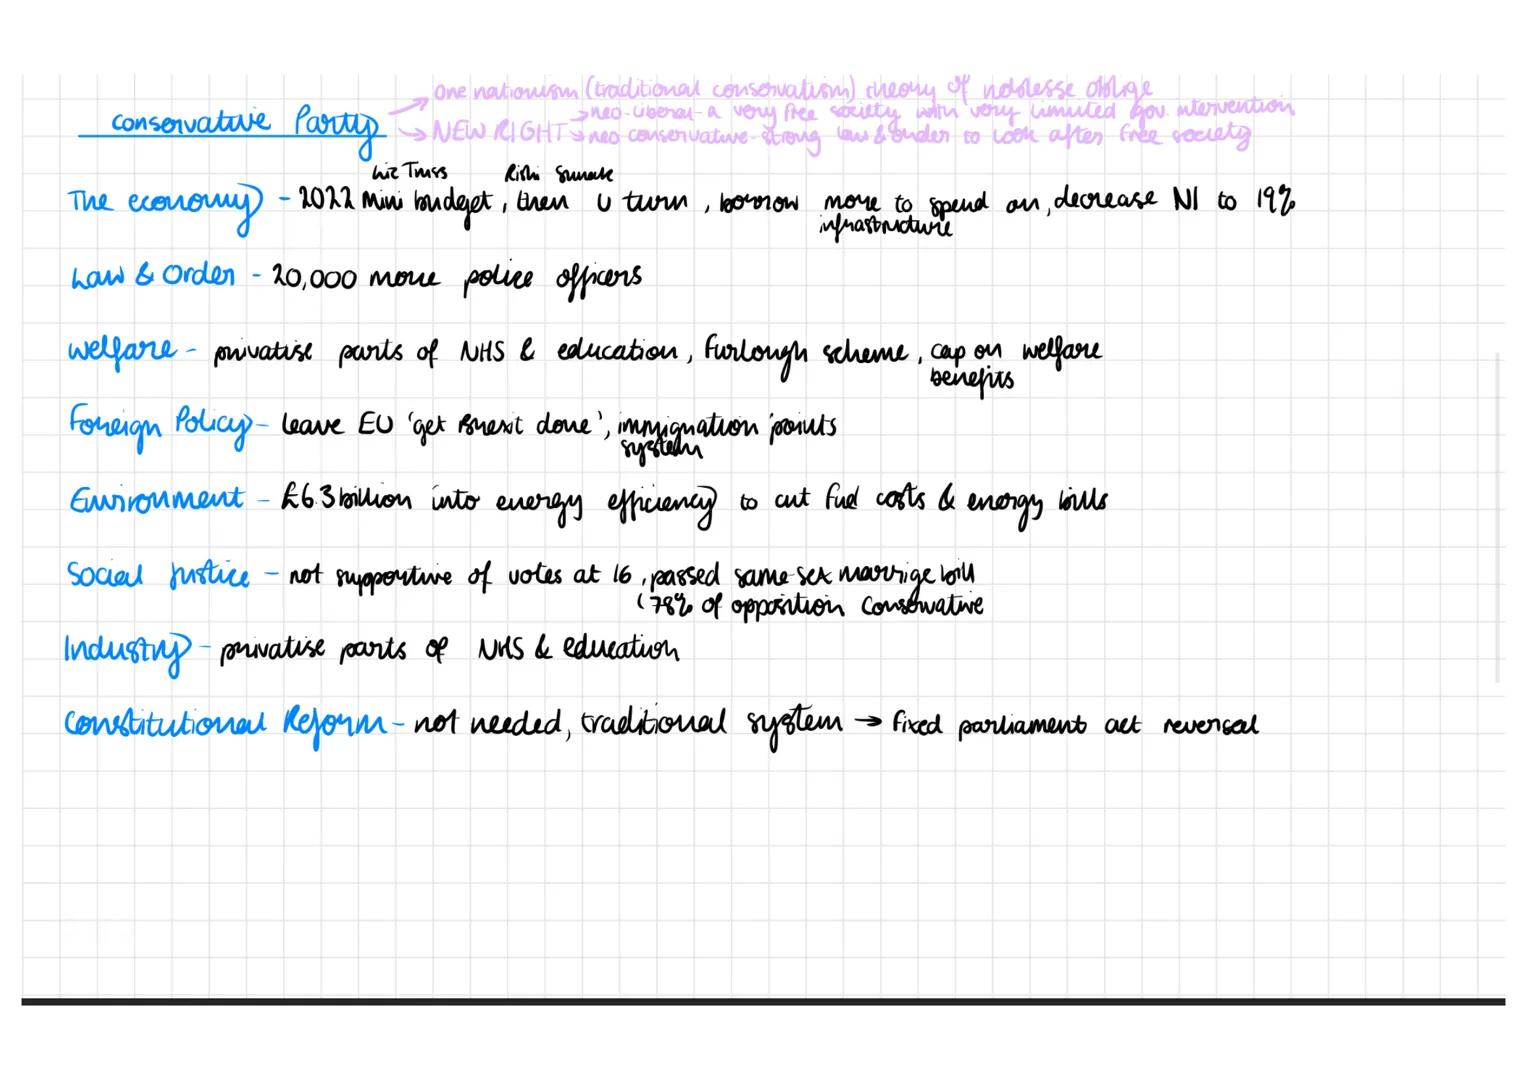 One nationism (traditional conservatism) theory of noblesse oblige
conservative Party
→ neo-liberal - a very free society with very limited gov. intervention
NEW RIGHT → neo conservative - strong law & order to look after free society
Liz Truss Rishi Sunak
The economy - 2022 mini budget, then U turn, borrow more to spend on, decrease NI to 19%
infrastructure
Law & Order - 20,000 more police officers
Welfare - privatise parts of NHS & education, furlough scheme, cap on welfare
benefits
Foreign Policy - leave EU 'get Brexit done', immigration points
system
Environment - £6.3 billion into energy efficiency to cut fuel costs & energy bills
Social Justice - not supportive of votes at 16, passed same-sex marrige bill
(78% of opposition Conservative
Industry - privatise parts of NHS & education
Constitutional Reform - not needed, traditional system → fixed parliament act reversed